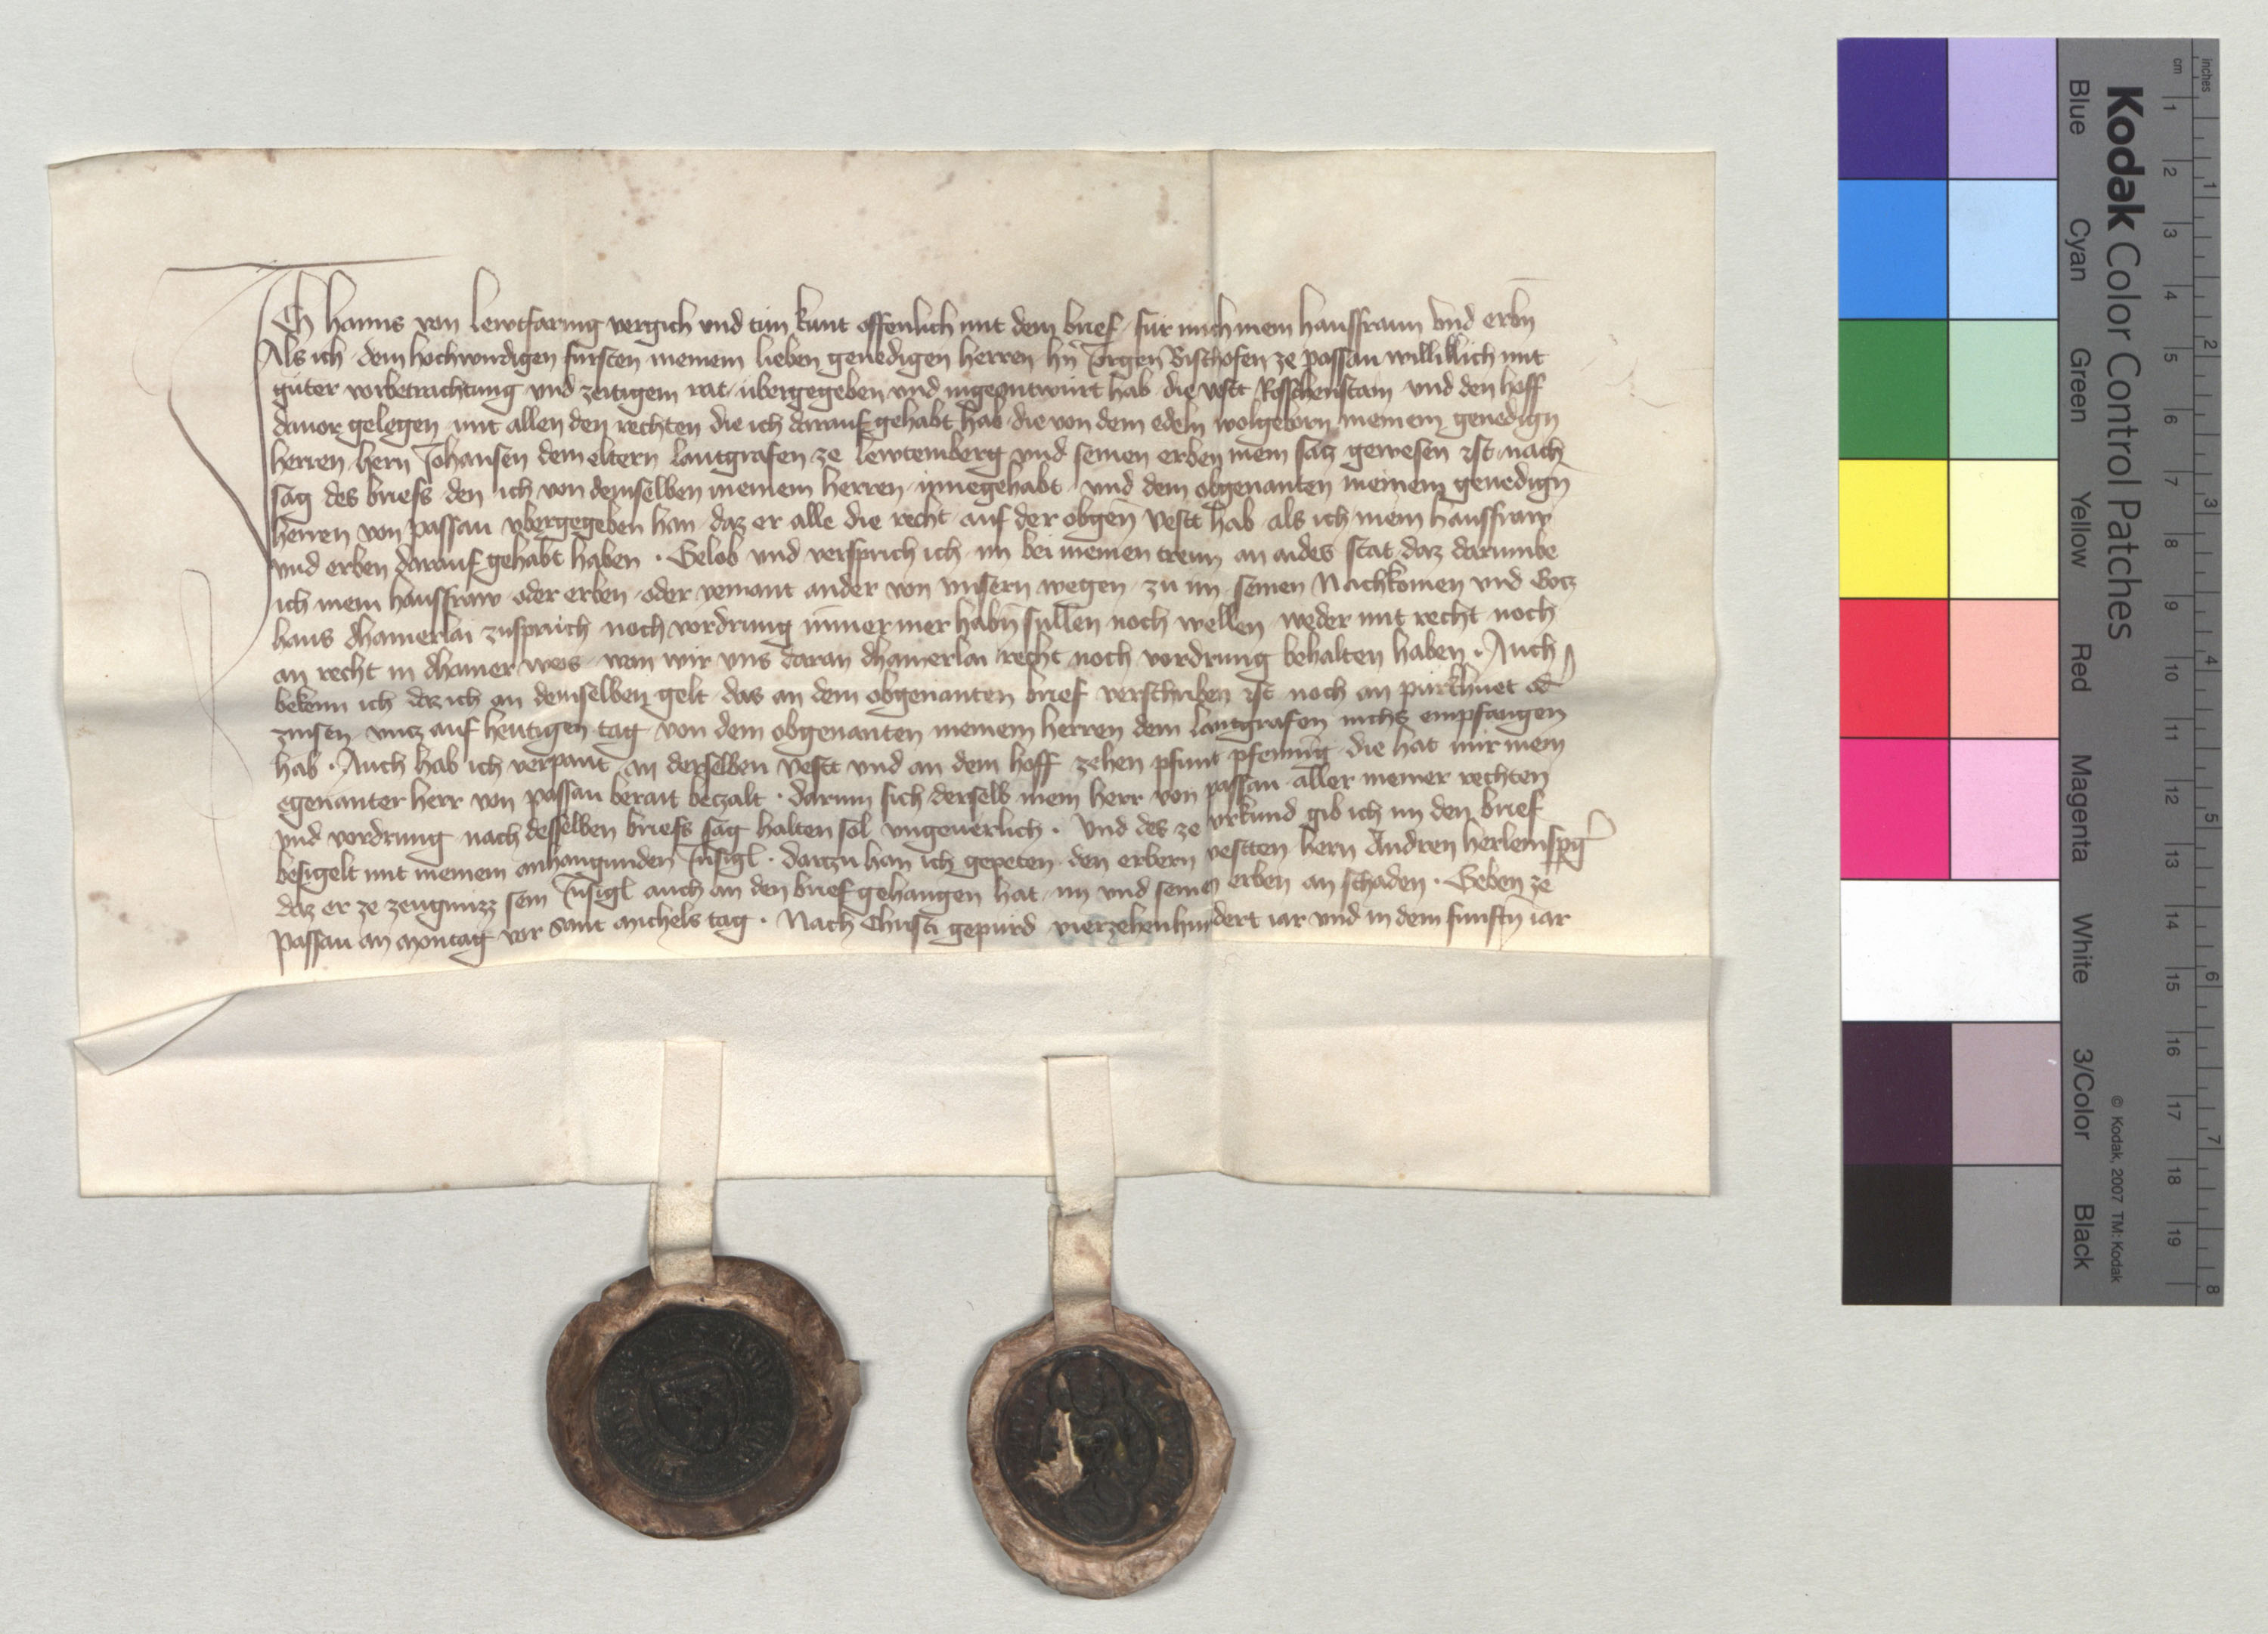 Ich Hanns von Lewtfaring vergich und tun kunt offenlich mit dem brief für mich mein haussfraun und erbn̄
Als ich dem hochwirdigen fürsten meinem lieben genedigen herren hn̄ Jorgen Bischofen ze passau williklich mit
guter vorbetrachtung und zeitigem rat ubergegeben und ingeantwürt hab die vestt Rosschenstain und den hoff
dauor gelegen mit allen den rechten die ich darauf gehabt hab die von dem edeln wolgeborn meinem genedign̄
herren hern Johansen dem eltern lantgrafen ze Lewtemberg und seinen erben mein satz gewesen ist nach
sag des briefs den ich von demselben meinem herren innegehabt und dem obgenanten meinem genedign̄
herren von passau vbergegeben han daz er alle die recht auf der obgen̄ vestt hab als ich mein haussfraw
und erben darauf gehabt haben . Gelob und versprich ich im bei meinen trewn an aides stat daz darumbe
ich mein haussfraw oder erben oder yemant ander von unsern wegen zu im seinen Nachkomen und Gotz
haus dhainerlai zuspruch noch vordrung nimer mer habn̄ sullen noch wellen weder mit recht noch
an recht in dhainer weis wan wir uns daran dhainerlai recht noch vordrung behalten haben . Auch
bekenn ich daz ich an demselben gelt das an dem obgenanten brief verschriben ist noch an purkhuet od̄
zinsen untz auf heutigen tag von dem obgenanten meinem herren dem lantgrafen nichs empfangen
hab . Auch hab ich verpaut an derselben vestt und an dem hoff zehen pfunt pfenning die hat mir mein
egenanter herr von passau berait betzalt . darum sich derselb mein herr von passau aller meiner rechten
und vordrung nach desselben briefs sag halten sol ungeuerlich . Und des ze vrkund gib ich im den brief
besigelt mit meinem anhangunden Insigl . dartzu han ich gepeten den erbern vestten hern Andren herleinspḡ
daz er ze zeugnuzz sein Insigl auch an den brief gehangen hat im und seinen erben an schaden . Geben ze
passau an montag vor sant michels tag . Nach Christi gepurd vierzehenhundert iar und in dem funftn̄ iar
Kodak Color Control Patches
Blue Cyan Green Yellow Red Magenta White 3/Color Black
© Kodak, 2007 TM: Kodak
cm 1 2 3 4 5 6 7 8 9 10 11 12 13 14 15 16 17 18 19
inches 1 2 3 4 5 6 7 8